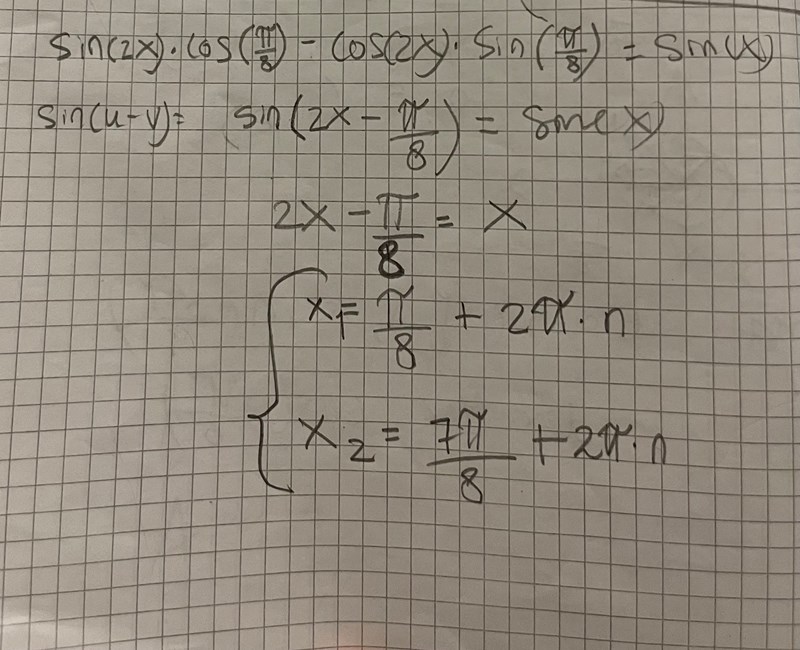 sin(2x)·cos(π/8) - cos(2x)·sin(π/8) = sin(x)
sin(u-v)= sin(2x - π/8) = sin(x)
2x - π/8 = x
x₁ = π/8 + 2π·n
x₂ = 7π/8 + 2π·n